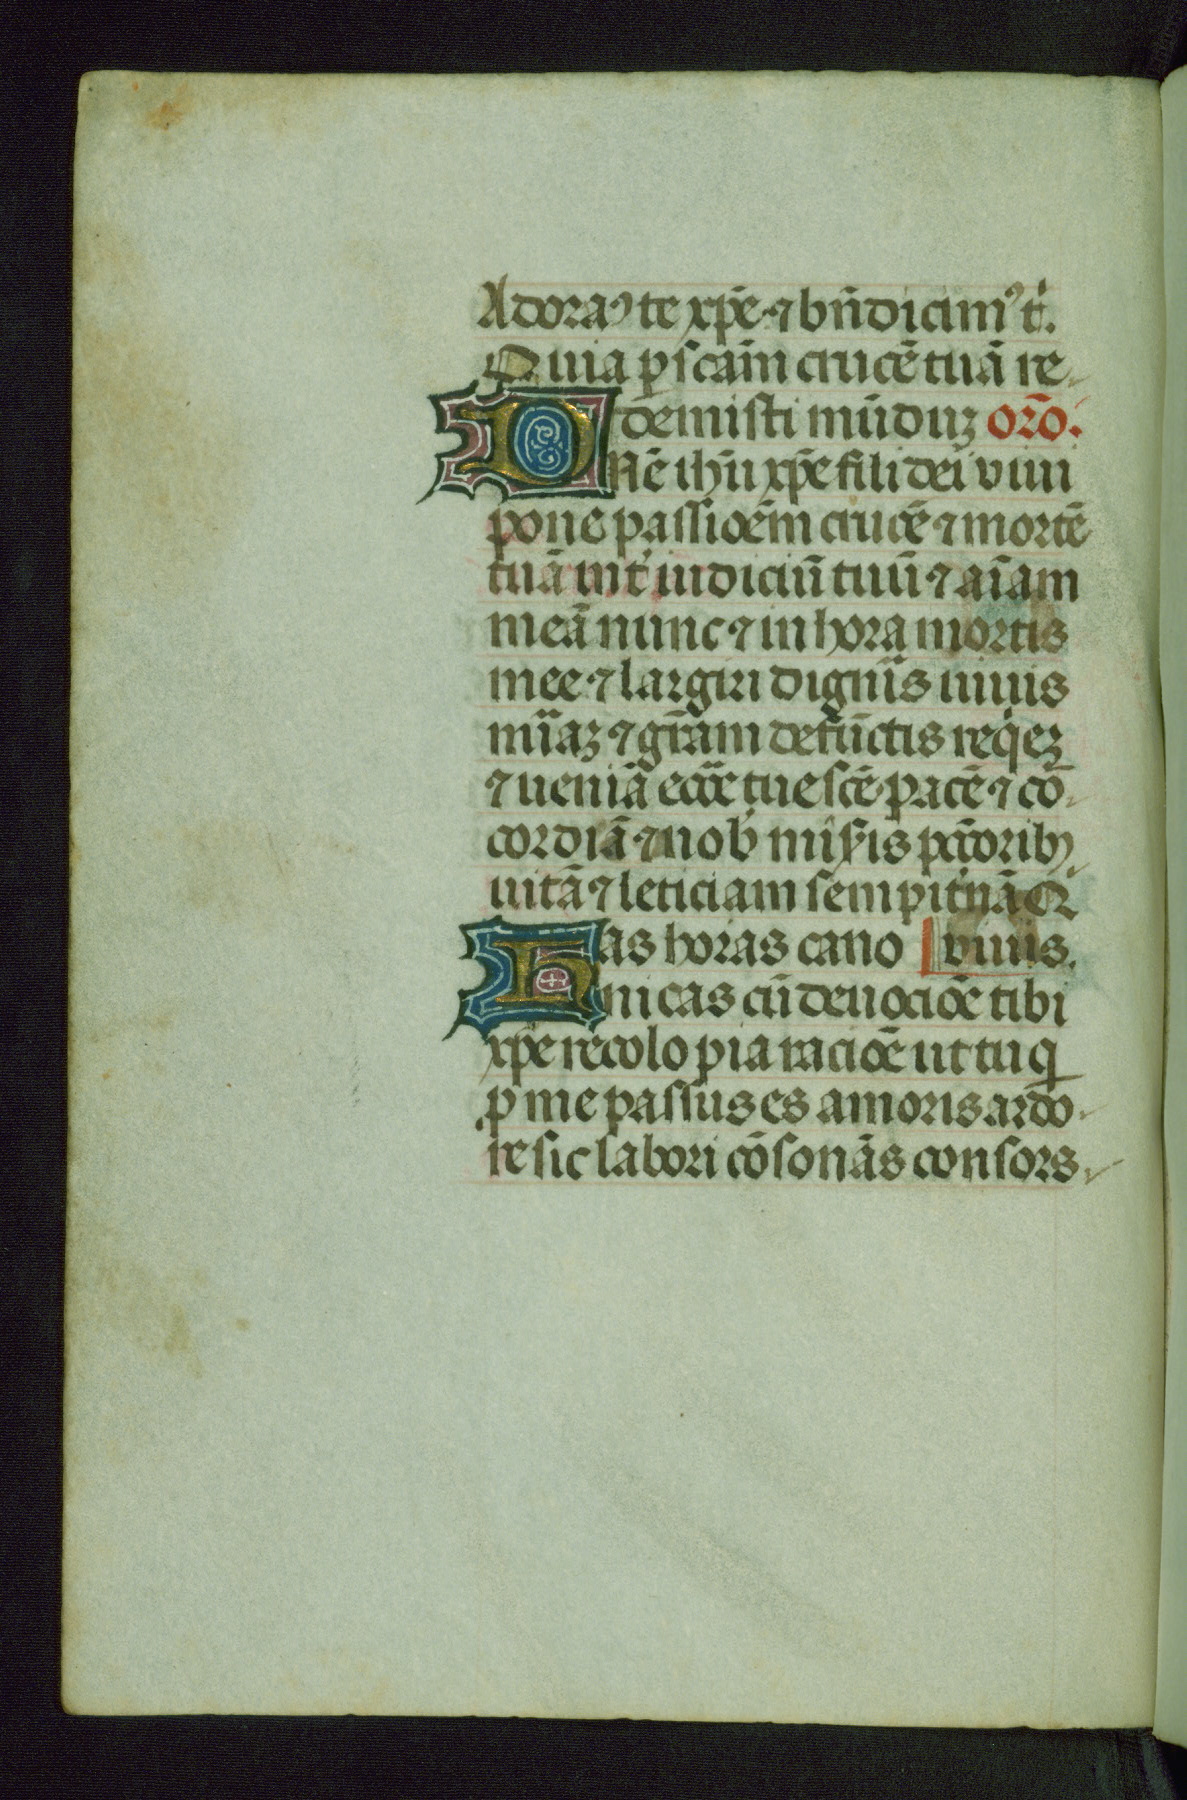 Adoraꝰ te xp̄e ⁊ bn̄dicimꝰ t'.
Quia ꝑ scām crucē tuā re-
demisti mūduꝫ or̄o.
DNē ih̄u xp̄e fili dei viui
pone passioēm crucē ⁊ mortē
tuā int' iudiciū tuū ⁊ aīam
meā nunc ⁊ in hora mortis
mee ⁊ largiri dign̄is uiuis
mīaꝫ ⁊ gr̄am defūctis reqeꝫ
⁊ ueniā ecc̄e tue scē pacē ⁊ cō-
cordiā ⁊ nob' mis̄is pcc̄orib
uitā ⁊ leticiam sempit'nā Q'
Has horas cano viuis.
nicas cū deuocioē tibi
xp̄e recolo pia racioē ut tu q
ꝓ me passus es amoris ardo-
re sic labori cōsonās consors